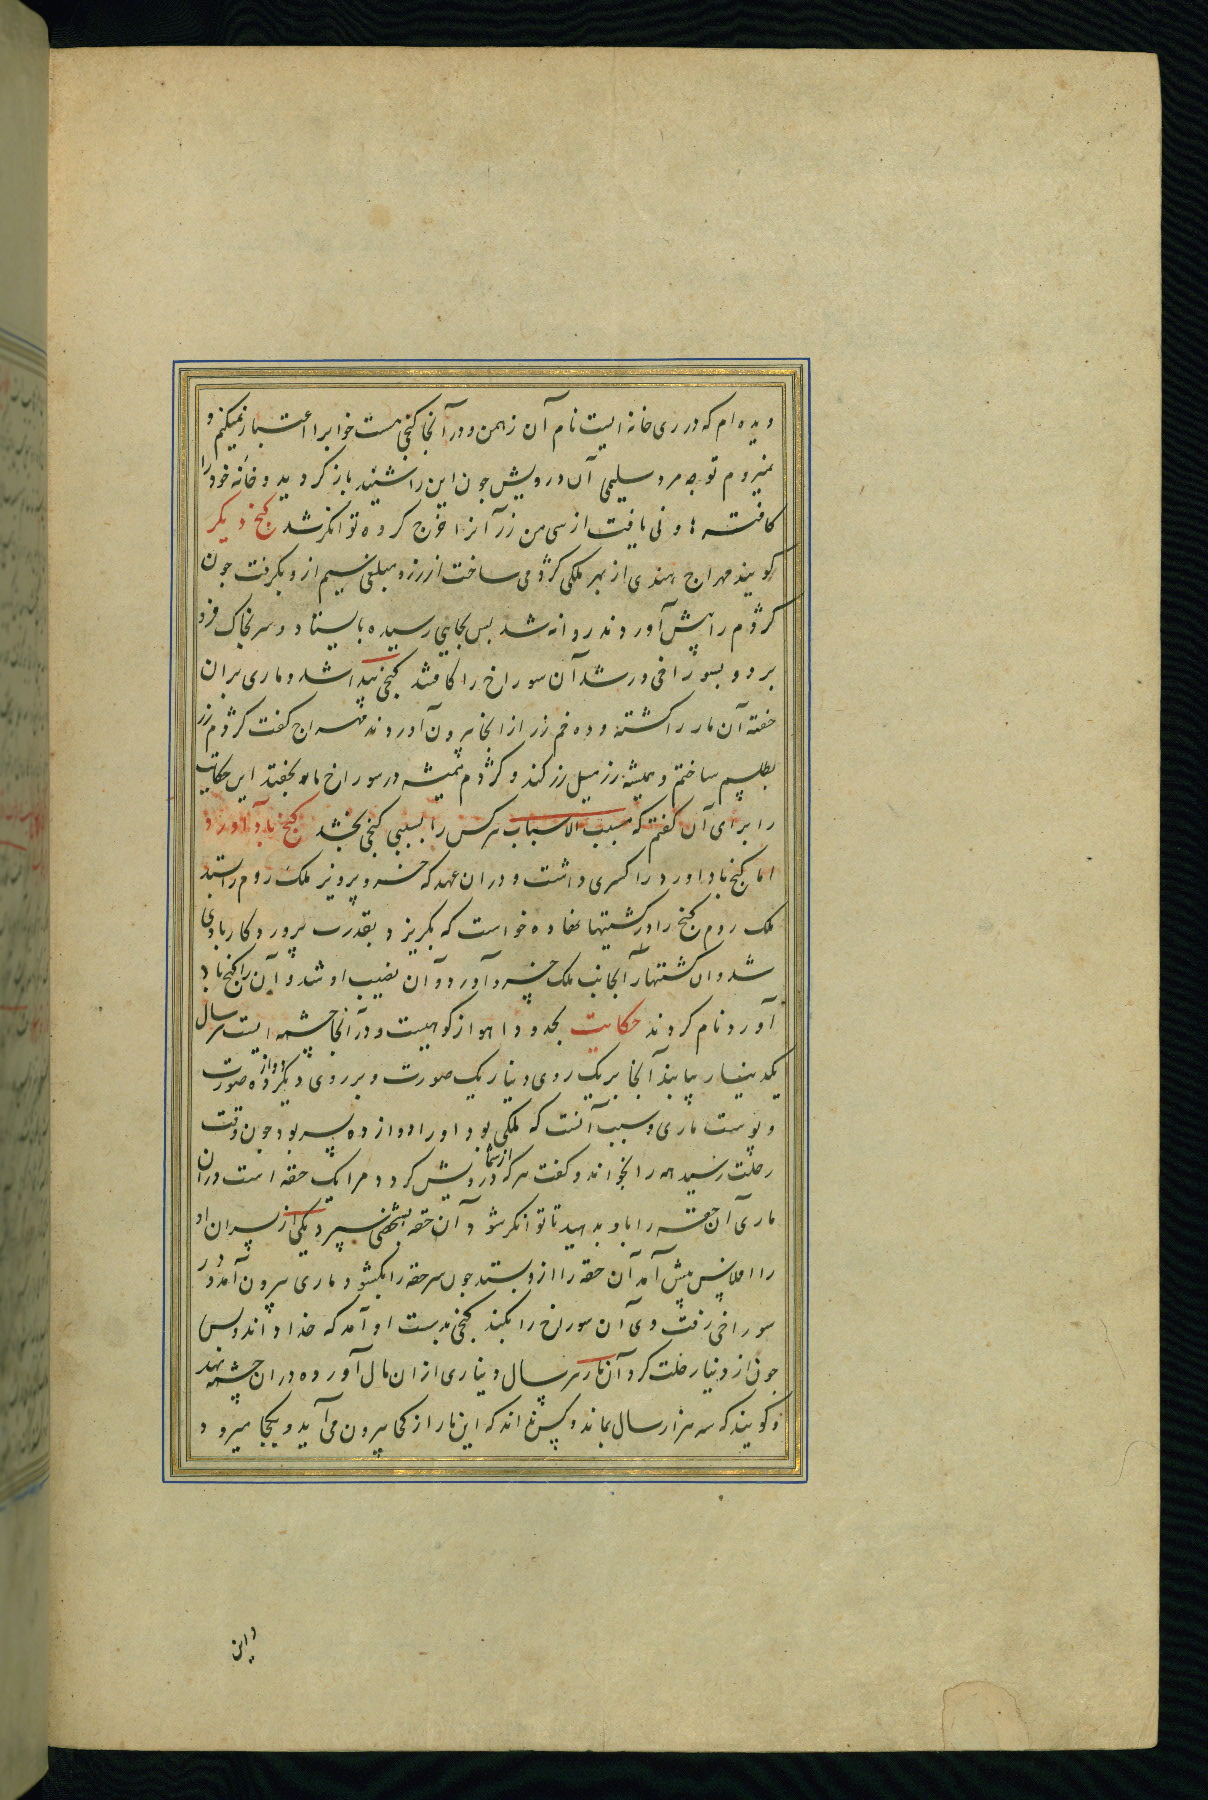 دیده ام که در ری خانه ایست نام آن زهمن و در آنجا کنجی هست خوابرا اعتبار نمیکنم و
نمیروم تو چه مرد سلیمی آن درویش چون این را شنید باز کردید و خانه خود را
کافت ها ونی یافت از سی من زر آنرا خرج کرده توانکر شد کنج دیکر
کویند مهراج هندی از بهر ملکی کژدمی ساخت از زر و مبلغی سیم ازو بکرفت چون
کژدم را پیش آوردند روانه شد پس بجایی رسیده بایستاد و سر بخاک فرو
برد و بسوراخی در شد آن سوراخ را کافتند کنجی پیدا شد و ماری بران
خفته آن مار را کشتند و ده خم زر از انجا بیرون آوردند مهراج کفت کژدم زر
بطلسم ساختم و همیشه زر میل زر کند و کژدم همیشه در سوراخ ماه بخفتد این حکایت
را برای آن کفتم که مسبب الاسباب هر کس را بسببی کنجی بخشد کنج باد آورد
اما کنج باد اورد را کسری داشت و دران عهد که خسرو پرویز ملک روم را ستد
ملک روم کنج را در کشتیها نهاده خواست که بکریزد بقدرت پرورد کار بادی
شد و ان کشتیها را بجانب ملک خسرو آورد و آن نصیب او شد و آن را کنج باد
آورد نام کردند حکایت بحدود اهواز کوهیست و در آنجا چشمه ایست هر سال
یکدینار بیابند آنجا بر یک روی دینار یک صورت و بر روی دیکر دوازده صورت
و پوست ماری و سبب آنست که ملکی بود او را دوازده پسر بود چون وقت
رحلت رسید همه را بخواند و کفت هر که از شما درویش کردد مرا یک حقه است دران
ماری آن حقه را باو بدهید تا توانکر شود آن حقه بشخصی سپرد یکی از پسران او
را افلاس پیش آمد آن حقه را ازو بستد چون سر حقه را بکشود ماری بیرون آمد و در
سوراخی رفت وی آن سوراخ را بکند کنجی بدست او آمد که خدا داند و پس
چون از دنیا رحلت کرد آن مار هر سال دیناری از ان مال آورده در ان چشمه نهد
و کویند که سه هزار سال بماند و کس نداند که این مار از کجا بیرون می آید و بکجا میرود
و این